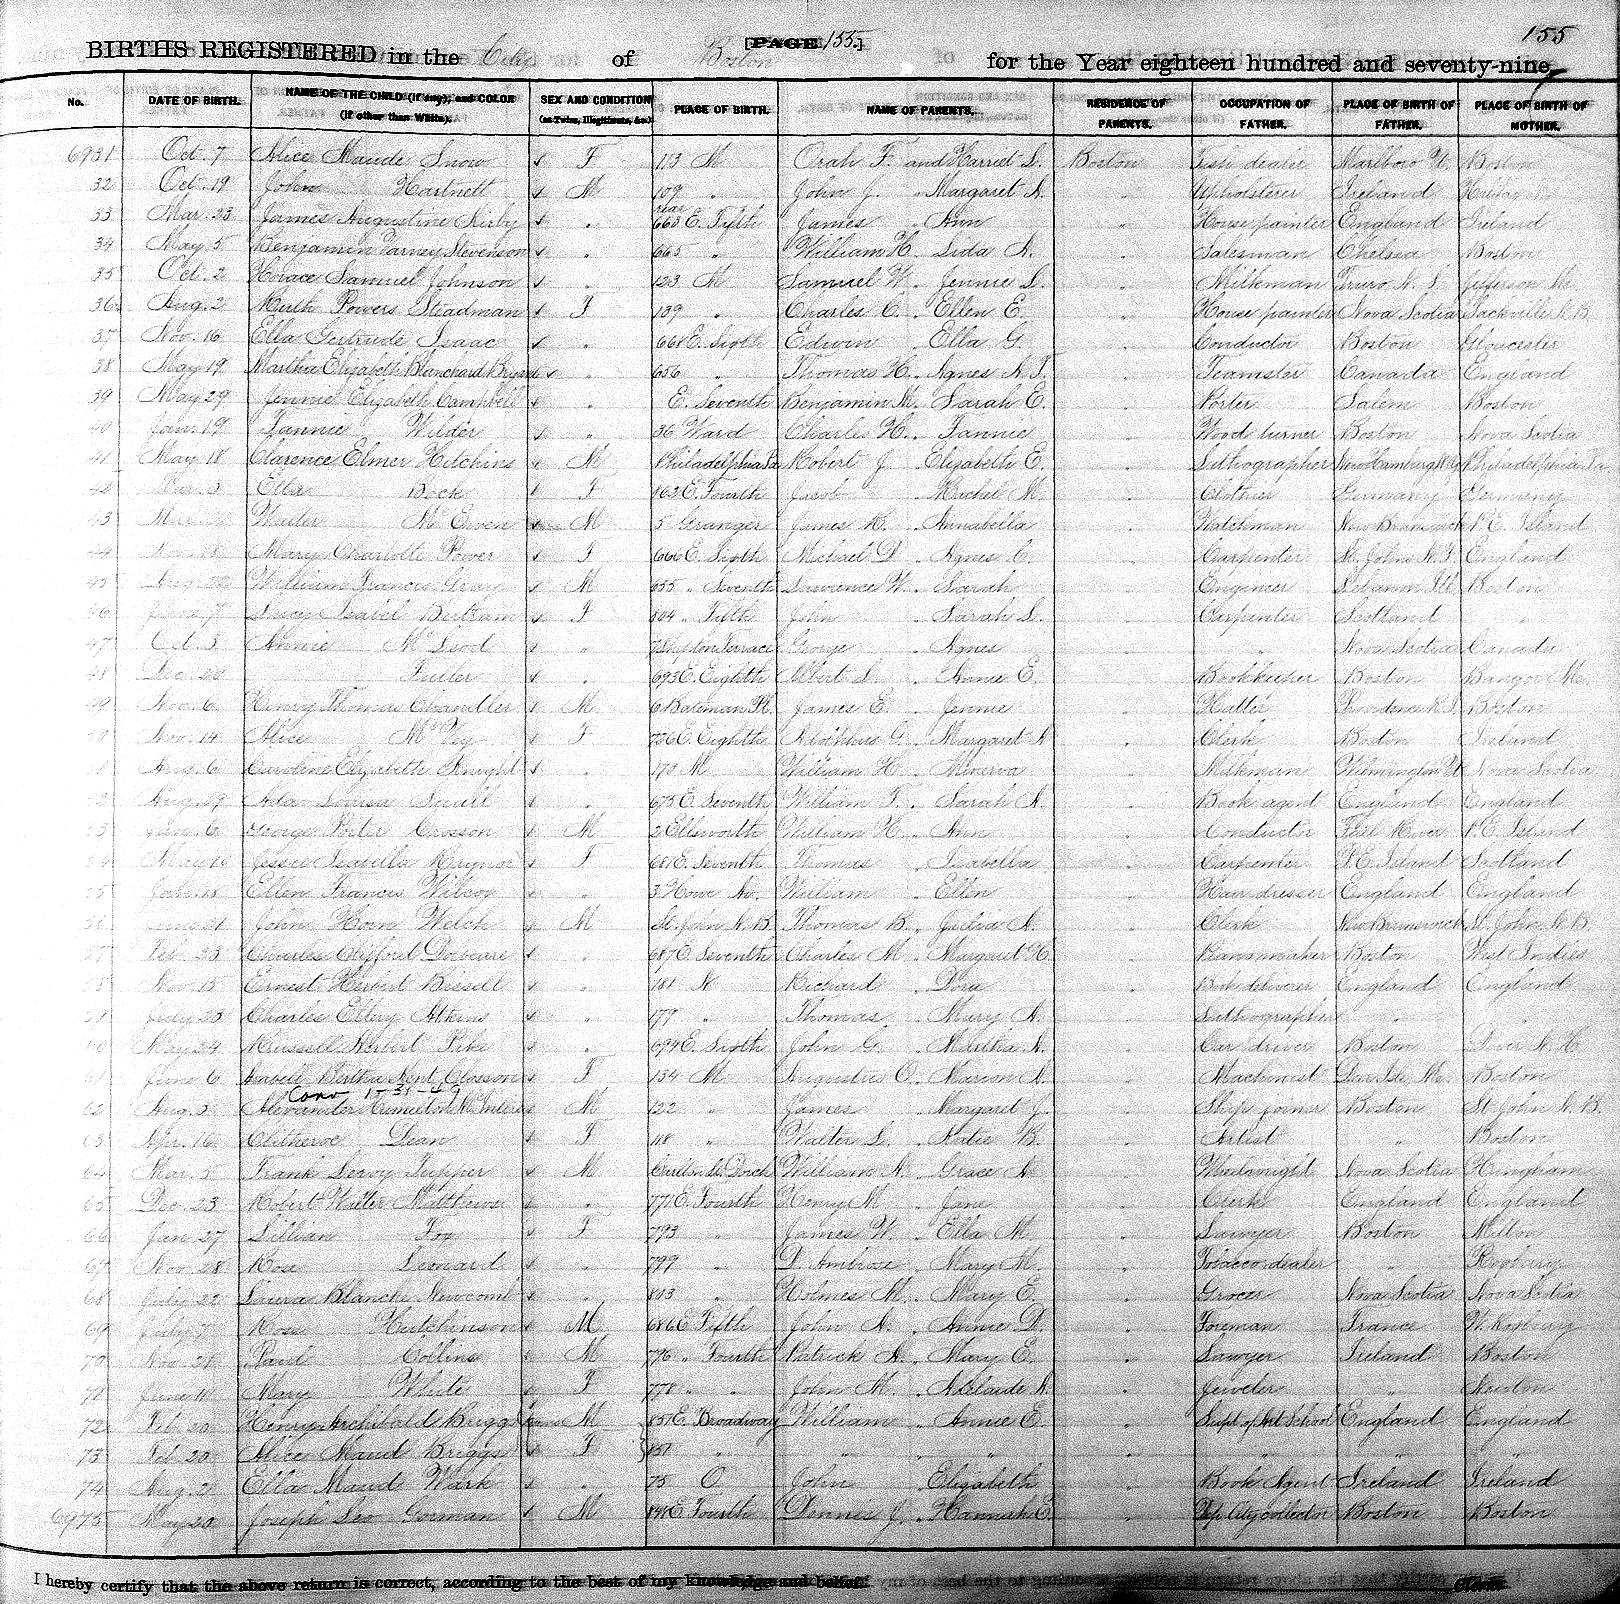 [PAGE 155.]
155
BIRTHS REGISTERED in the City of Boston for the Year eighteen hundred and seventy-nine,
No. DATE OF BIRTH. NAME OF THE CHILD (if any), and COLOR (if other than White). SEX AND CONDITION (as Twins, Illegitimate, &c.) PLACE OF BIRTH. NAME OF PARENTS. RESIDENCE OF PARENTS. OCCUPATION OF FATHER. PLACE OF BIRTH OF FATHER. PLACE OF BIRTH OF MOTHER.
6931 Oct. 7 Alice Maude Snow F 113 M Orah F. and Harriet L. Boston Fish dealer Marlboro Boston
32 Oct. 19 John Hartnett M 109 " John J. " Margaret A. " Upholsterer Ireland
33 Mar. 23 James Augustine Kirby " rear 663 E. Fifth James " Ann " House painter England Ireland
34 May. 5 Benjamin Stevenson " 665 " William H. " Lida A. " Salesman Chelsea Boston
35 Oct. 2 Horace Samuel Johnson " 123 M Samuel W. " Jennie L. " Milkman Truro N. S. Jefferson Me.
36 Aug. 2 Powers Steadman F 139 " Charles C. " Ellen E. " House painter Nova Scotia Sackville N.B.
37 Nov. 16 Ella Gertrude Isaac " 661 E. Sixth Edwin " Ella G. " Conductor Boston Gloucester
38 May. 19 Martha Elizabeth Blanchard " 656 " Thomas H. " Agnes " Teamster Canada England
39 May 29 Jennie Elizabeth Campbell " E. Seventh Benjamin M. " Sarah E. " Porter Salem Boston
40 Jan. 19 Fannie Wilder " 36 Ward Charles H. " Fannie " Wood turner Boston Nova Scotia
41 May. 18 Clarence Elmer Hitchins M Philadelphia Pa Robert J. " Elizabeth E. " Lithographer New Hamburg Philadelphia Pa.
42 3 Ella Bock F 862 E. Fourth Jacob " Rachel M. " Clothier Germany Germany
43 Walter McEwen M 5 Granger James " Annabella " Watchman New Brunswick P.E. Island
44 Nov. Mary Charlotte Power F 666 E. Sixth Michael D. " Agnes C. " Carpenter St. Johns N.F. England
45 Aug. William Francis Gray M " Seventh Lawrence W. " Sarah " Engineer Lebanon Boston
46 Lucy Isabel Bertram F 804 " Fifth John " Sarah L. " Carpenter Scotland "
47 Oct. 3 Annie McLeod " Terrace George " Agnes " " Nova Scotia Canada
48 Dec. 20 Fuller " 693 E. Eighth Albert L. " Annie E. " Bookkeeper Boston Bangor Me.
49 Nov. 6 Henry Thomas Chandler M 6 Bateman Pl. James E. " Jennie " Hatter Providence R.I. Boston
50 Nov. 14 Alice McVey F 706 E. Eighth G. " Margaret A " Clerk Boston Ireland
51 Aug. 6 Caroline Elizabeth Knight " 170 M William H. " Minerva " Milkman Wilmington Nova Scotia
52 Aug. 29 Ada Louisa Small " 675 E. Seventh William T. " Sarah A. " Book agent England England
53 Jan. 6 George Porter Crosson M 2 Ellsworth William H. " Ann " Conductor Fall River P.E. Island
54 May Jessie Isabella F 681 E. Seventh Thomas " Isabella " Carpenter P.E. Island Scotland
55 Jan. Ellen Francis Wilcox " 3 Howe Av. William " Ellen " Hair dresser England England
56 21 John Horn Welch M St. John N.B. Thomas B. " Julia A. " Clerk New Brunswick St. John N.B.
57 Feb. 23 Charles Clifford Dolbeare " 687 E. Seventh Charles M. " Margaret H. " Boston West Indies
58 Nov. 15 Ernest Herbert Bissell " 181 N Richard " Dora " England England
59 July 20 Charles Ellery Atkins " 179 " Thomas " Mary A. " Lithographer " "
60 May 24 Russell Herbert Pike " 694 E. Sixth John G. " Martha A. " Car driver Boston Dover N.H
61 June 6 Isabell Bertha Kent Closson F 134 M Augustus O. " Marion A. " Machinist Deer Isle Me. Boston
Corr 1-31-49
62 Aug. 3 Alexander Hamilton M 122 " James " Margaret J. " Ship joiner Boston St. John N.B.
63 Apr. 16 Clitheroe Dean F 118 " Walter L. " Katie B. " Artist " Boston
64 Mar. 5 Frank Leroy Tupper M William A. " Grace A " Wheelwright Nova Scotia Hingham
65 Dec. 23 Robert Walter Matthews " 771 E. Fourth Henry M. " Jane " Clerk England England
66 Jan. 27 Lillian Fox F 793 " James W. " Ella M. " Lawyer Boston Milton
67 Nov. 28 Rose Leonard " 799 " D. Ambrose " Mary M. " Tobacco dealer " Roxbury
68 July 22 Laura Blanche Newcomb " 813 " Holmes M. " Mary E. " Grocer Nova Scotia Nova Scotia
69 July 7 Ross Hutchinson M 686 E. Fifth John A. " Annie D. " Foreman France W. Roxbury
70 Nov. 21 Paul Collins M 776 " Fourth Patrick A. " Mary E. " Lawyer Ireland Boston
71 June 11 Mary White F 778 " " John M. " Adelaide A. " Jeweler " Newton
72 Feb. 20 Henry Archibald Briggs Twins M 851 E. Broadway William " Annie E. " Supt. of Art School England England
73 Feb. 20 Alice Maud Briggs F 851 " " " " " " "
74 Aug. 2 Ella Maud Wark " 75 O John " Elizabeth " Book Agent Ireland Ireland
6975 May. 20 Joseph Leo Gorman M E. Fourth Dennis J. " Hannah E. " Dep. City collector Boston Boston
I hereby certify that the above return is correct, according to the best of my knowledge and belief.
Clerk